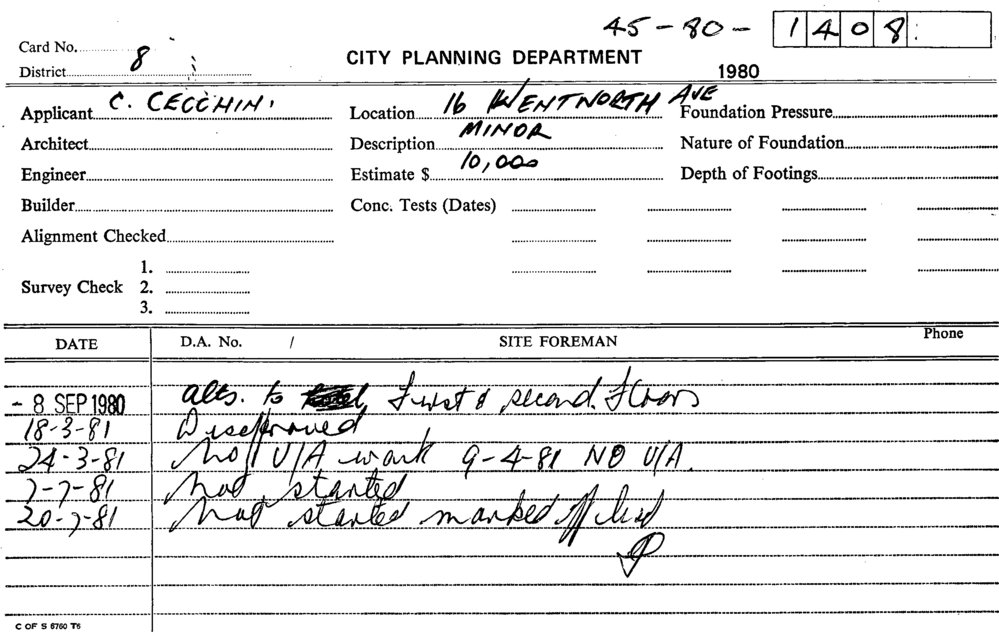 45-80- 1408
Card No.
CITY PLANNING DEPARTMENT
District 8
1980
Applicant C. CECCHINI
Location 16 WENTWORTH AVE
Foundation Pressure
Architect
Description MINOR
Nature of Foundation
Engineer
Estimate $ 10,000
Depth of Footings
Builder
Conc. Tests (Dates)
Alignment Checked
Survey Check
1.
2.
3.
DATE D.A. No. / SITE FOREMAN Phone
- 8 SEP 1980 alts. to First & second. Floors
18-3-81 Disapproved
24-3-81 No U/A work 9-4-81 NO U/A.
7-7-81 Not started
20-7-81 Not started marked off list
C OF S 6760 T6